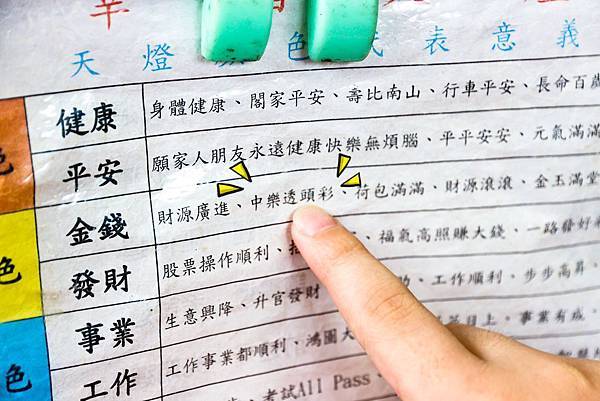 幸
天燈顏色代表意義
健康 身體健康、闔家平安、壽比南山、行車平安、長命百歲
色 平安 願家人朋友永遠健康快樂無煩腦、平平安安、元氣滿滿
金錢 財源廣進、中樂透頭彩、荷包滿滿、財源滾滾、金玉滿堂
色 發財 股票操作順利、福氣高照賺大錢、一路發
事業 生意興降、升官發財 工作順利、步步高昇、
色 工作 工作事業都順利、鴻圖大 事業有成、
考試All Pass